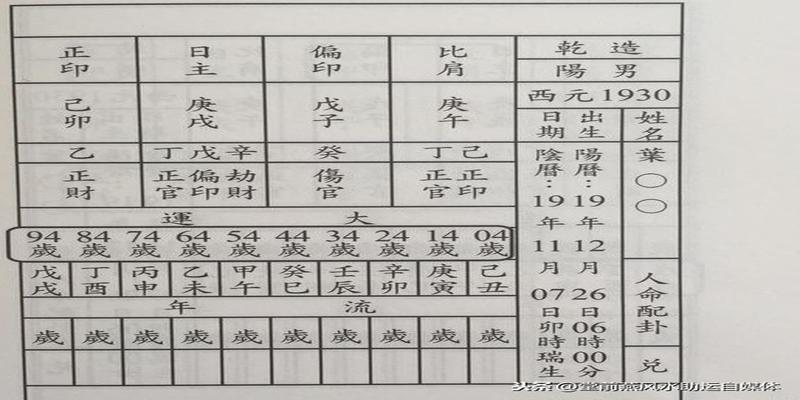 乾造
陽男
西元1930
姓名
葉○○
人命配卦
兌
出生日期
陽曆：19年12月26日06時00分
陰曆：19年11月07日卯時瑞生
比肩 偏印 日主 正印
庚午 戊子 庚戌 己卯
丁己 癸 丁戊辛 乙
正官 正印 傷官 正官 偏印 劫財 正財
大運
04歲 14歲 24歲 34歲 44歲 54歲 64歲 74歲 84歲 94歲
己丑 庚寅 辛卯 壬辰 癸巳 甲午 乙未 丙申 丁酉 戊戌
流年
歲 歲 歲 歲 歲 歲 歲 歲 歲 歲